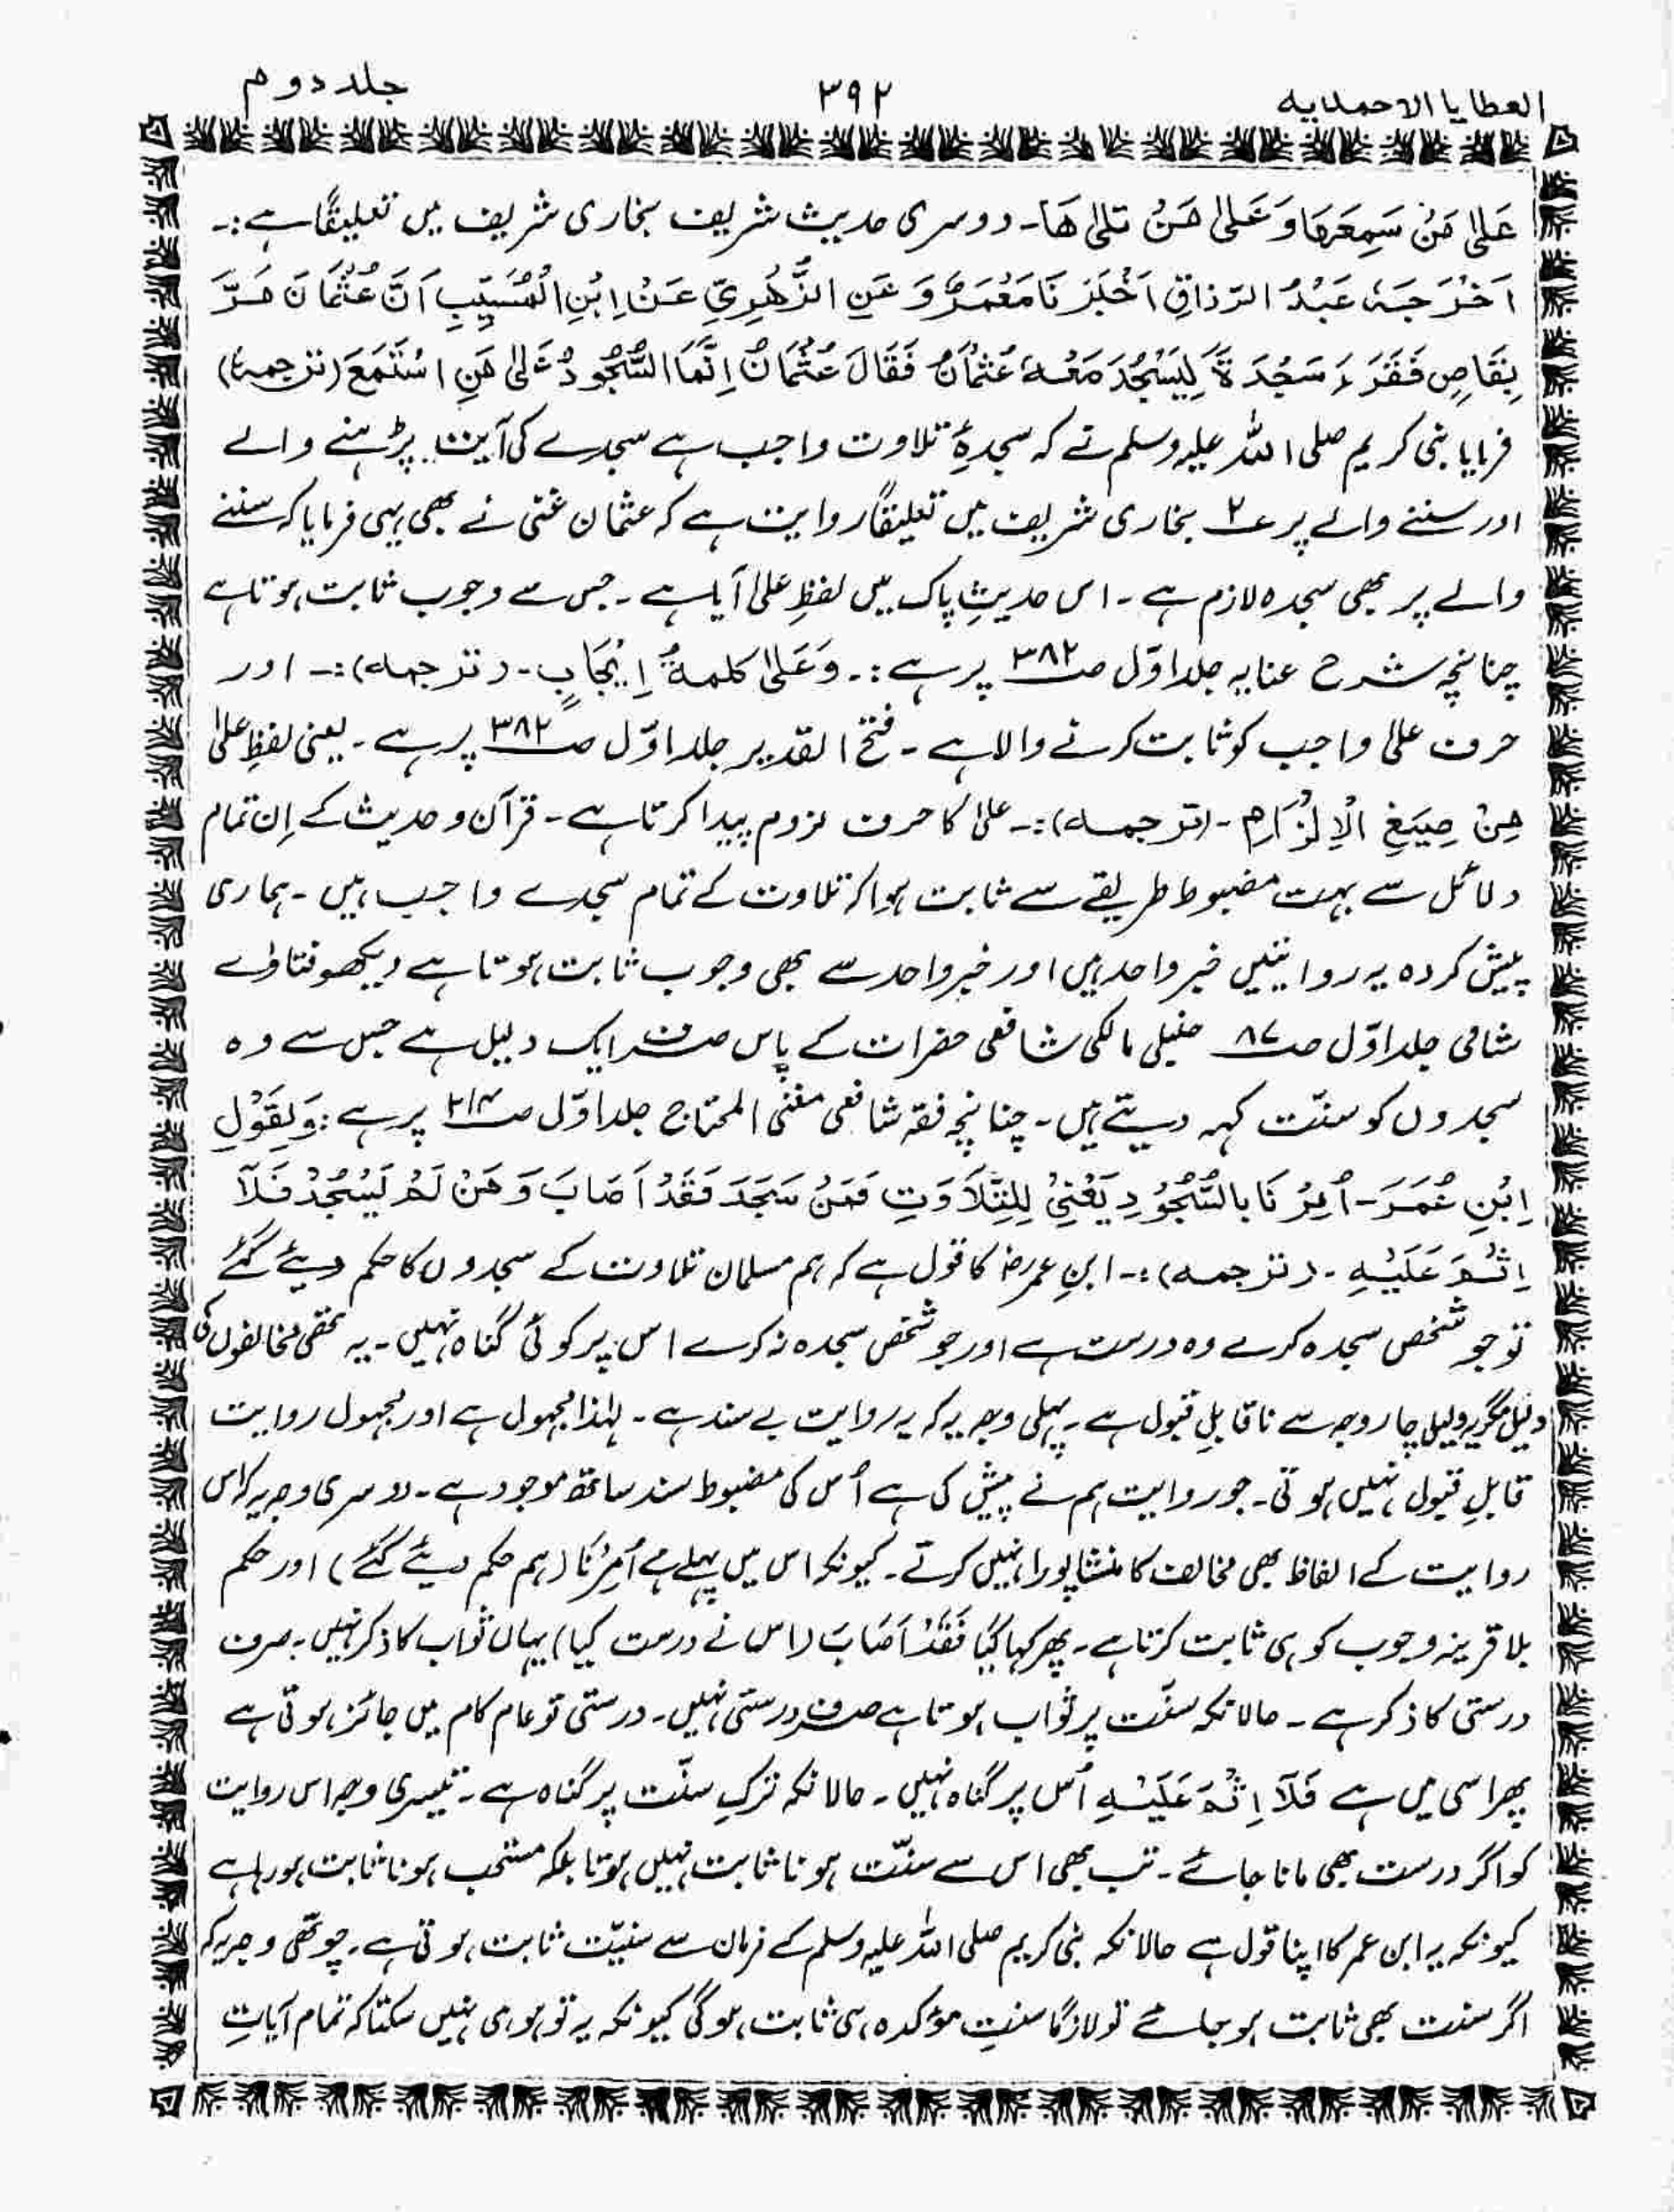 العطایا الاحمدیہ ۳۹۲ جلد دوم
عَلیٰ مَنْ سَمِعَهَا وَ عَلیٰ مَنْ تلیٰ هَا۔ دوسری حدیث شریف بخاری شریف میں تعلیقًا ہے:۔
اَخْرَجَہٗ عَبْدُ الرّزاقِ اَخْبَرَ نَا مَعْمَرٌ وَ عَنِ الزُّهْرِیِّ عَنْ اِبْنِ الْمُسَیِّبِ اَنَّ عُثْمَانَ مَرَّ
بِقَاصٍ فَقَرَءَ سَجْدَ ةً لِیَسْجُدَ مَعْہٗ عُثْمَانُ فَقَالَ عُثْمَانُ اِنَّمَا السُّجُودُ عَلیٰ مَنِ اسْتَمَعَ (ترجمہ)
فرمایا نبی کریم صلی اللہ علیہ وسلم نے کہ سجدۂ تلاوت واجب ہے سجدے کی آیت پڑہنے والے
اور سننے والے پر ع۲ بخاری شریف میں تعلیقًا روایت ہے کہ عثمان غنی نے بھی یہی فرمایا کہ سننے
والے پر بھی سجدہ لازم ہے۔ اس حدیثِ پاک میں لفظِ علیٰ آیا ہے۔ جس سے وجوب ثابت ہوتا ہے
چنانچہ شرح عنایہ جلد اوّل صـ۳۸۲ پر ہے:۔ وَعَلیٰ کلمۃٌ اِیْجَابٍ۔ (ترجمہ):۔ اور
حرف علیٰ واجب کو ثابت کرنے والا ہے۔ فتح القدیر جلد اوّل صـ۳۸۲ پر ہے۔ یعنی لفظِ علیٰ
مِنْ صِیَغِ الْاِلْزَامِ۔ (ترجمہ):۔ علیٰ کا حرف لزوم پیدا کرتا ہے۔ قرآن و حدیث کے اِن تمام
دلائل سے بہت مضبوط طریقے سے ثابت ہوا کہ تلاوت کے تمام سجدے واجب ہیں۔ ہماری
پیش کردہ یہ روایتیں خبر واحد ہیں اور خبر واحد سے بھی وجوب ثابت ہوتا ہے دیکھو فتاوٰے
شامی جلد اوّل صـ۸۷ حنبلی مالکی شافعی حضرات کے پاس صرف ایک دلیل ہے جس سے وہ
سجدوں کو سنّت کہہ دیتے ہیں۔ چنانچہ فقہ شافعی مغنی المحتاج جلد اوّل صـ۲۱۴ پر ہے: وَلِقَوْلِ
اِبْنِ عُمَرَ۔ اُمِرْ نَا بِالسُّجُوْدِ یَعْنِیْ لِلتِّلَاوَتِ فَمَنْ سَجَدَ فَقَدْ اَصَابَ وَ مَنْ لَمْ یَسْجُدْ فَلَآ
اِثْمَ عَلَیْہِ۔ (ترجمہ):۔ ابنِ عمر رضؓ کا قول ہے کہ ہم مسلمان تلاوت کے سجدوں کا حکم دیئے گئے
تو جو شخص سجدہ کرے وہ درست ہے اور جو شخص سجدہ نہ کرے اس پر کوئی گناہ نہیں۔ یہ تھی مخالفوں کی
دلیل مگر یہ دلیل چار وجہ سے ناقابلِ قبول ہے۔ پہلی وجہ یہ کہ یہ روایت بے سند ہے۔ لہٰذا مجہول ہے اور مجہول روایت
قابلِ قبول نہیں ہوتی۔ جو روایت ہم نے پیش کی ہے اُس کی مضبوط سند ساتھ موجود ہے۔ دوسری وجہ یہ کہ اس
روایت کے الفاظ بھی مخالف کا منشا پورا نہیں کرتے۔ کیونکہ اس میں پہلے ہے اُمِرْنَا (ہم حکم دیئے گئے) اور حکم
بلا قرینہ وجوب کو ہی ثابت کرتا ہے۔ پھر کہا گیا فَقَدْ اَصَابَ (اس نے درست کیا) یہاں ثواب کا ذکر نہیں۔ صرف
درستی کا ذکر ہے۔ حالانکہ سنّت پر ثواب ہوتا ہے صرف درستی نہیں۔ درستی تو عام کام میں جائز ہوتی ہے
پھر اسی میں ہے فَلَآ اِثْمَ عَلَیْہِ اُس پر گناہ نہیں۔ حالانکہ ترکِ سنّت پر گناہ ہے۔ تیسری وجہ اس روایت
کو اگر درست بھی مانا جائے۔ تب بھی اس سے سنّت ہونا ثابت نہیں ہوتا بلکہ مستحب ہونا ثابت ہو رہا ہے
کیونکہ یہ ابن عمر کا اپنا قول ہے حالانکہ نبی کریم صلی اللہ علیہ وسلم کے فرمان سے سنیّت ثابت ہوتی ہے۔ چوتھی وجہ یہ کہ
اگر سنت بھی ثابت ہو جائے تو لازمًا سنتِ مؤکدہ ہی ثابت ہوگی کیونکہ یہ تو ہو ہی نہیں سکتا کہ تمام آیاتِ